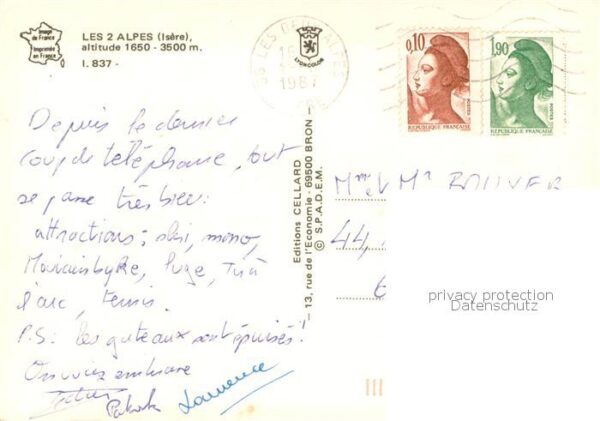 Image
de France
Imprimée
en France
LES 2 ALPES (Isère),
altitude 1650 - 3500 m.
I. 837 -
LYONCOLOR
LES DEUX ALPES
1987
0,10
REPUBLIQUE FRANÇAISE
POSTES
1,90
REPUBLIQUE FRANÇAISE
POSTES
Depuis le dernier
coup de téléphone, tout
se passe très bien :
attractions : ski, mono,
luge, Tir à
l'arc, tennis.
P.S: les gateaux sont épuisés !
On vous embrasse
Laurence
Editions CELLARD
- 13, rue de l'Economie - 69500 BRON -
© S.P.A.D.E.M.
Mme et Mr BOUVER
44,
6
privacy protection
Datenschutz